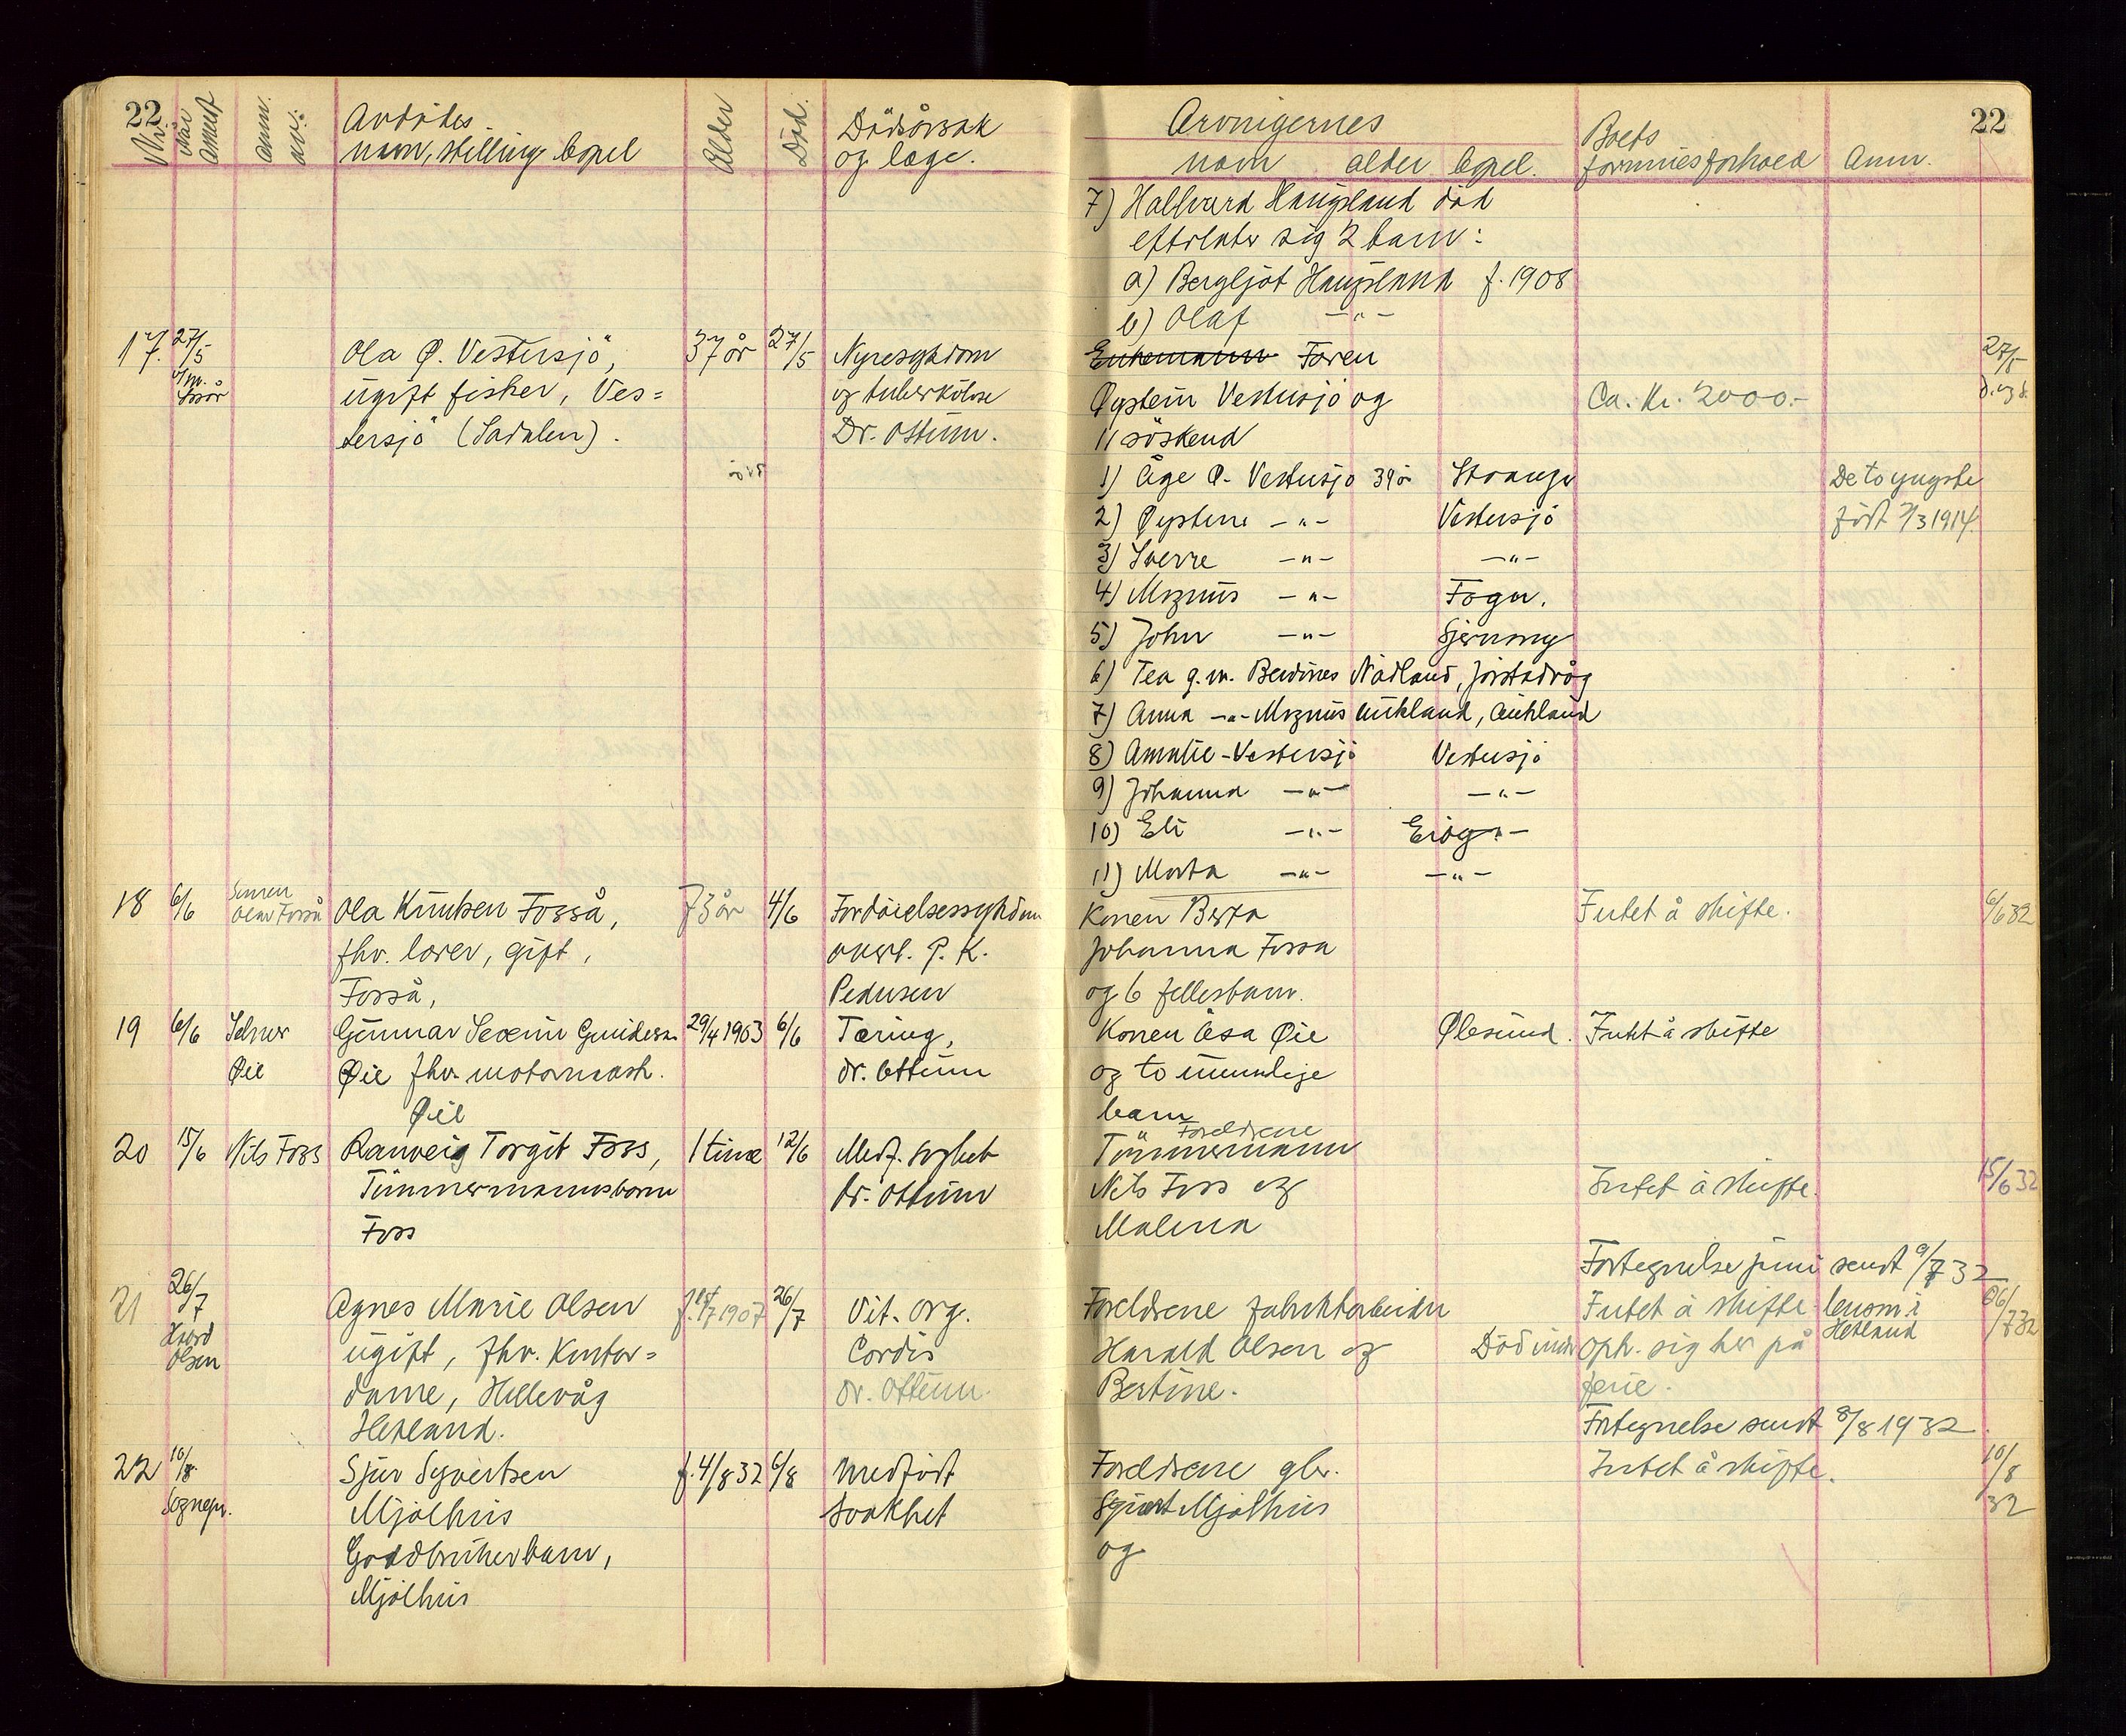 22
22
Nr.
Når
Anmelt
Anm.
av:
Avdödes
navn, stilling, bopel
Alder
Död.
Dödsårsak
og læge.
Arvingernes
navn alder bopel.
Boets
formuesforhold
Anm.
7) Hallvard Haugland död
efterlater sig 2 barn:
a) Bergljot Haugland f. 1908
b) Olaf —"—
17. 27/5
Ola Ø. Vestersjö,
ugift fisker, Ves=
tersjö (Sadalen).
37 år
27/5
Nyresygdom
og tuberkulose
Dr. Ottum.
Enkemann Faren
Øystein Vestersjö og
11 söskend
Ca. Kr. 2000.-
27/5
1) Åge Ø. Vestersjö 39 år
2) Øystein —"— Vestersjö
3) Sverre —"— —"—
4) Magnus —"— Fogn.
5) John —"— Sjernarøy
6) Tea g.m. Berdines Nådland, Jørstadvåg
7) Anna —"— Magnus Aukland, Aukland
8) Amalie Vestersjö Vestersjö
9) Johanna —"— —"—
10) Eli —"—
11) Marta —"— —"—
De to yngste
född 7/3 1914.
18 6/6 Sönnen
Olav Fosså
Ola Knutsen Fosså,
fhv. lærer, gift,
Fosså,
73 år
4/6
Fordöielsessygdom
P. K.
Pedersen
Konen Berta
Johanna Fosså
og 6 fellesbarn.
Intet å skifte.
6/6 32
19 6/6
Øie
Gunnar Severin Gundersen
Øie fhv. motormask.
Øie
29/4 1903
6/6
Tæring,
dr. Ottum
Konen Åsa Øie
og to umyndige
barn
Ølesund.
Intet å skifte
20 15/6 Nils Foss
Ranveig Torgit Foss,
Tömmermannsbarn
Foss
1 time
12/6
Medf. svakhet
Dr. Ottum
Foreldrene
Tömmermann
Nils Foss og
Malena
Intet å skifte.
15/6 32
Fortegnelse juni sendt 9/7 32
21 26/7
Harald
Olsen
Agnes Marie Olsen
ugift, fhv. Kontor=
dame, Hillevåg
Hetland.
f. 1907
26/7
Vit. org.
Cordis
Dr. Ottum.
Foreldrene fabrikkarbeider
Harald Olsen og
Bertine.
Intet å skifte
Död under oph. sig her på
ferie.
lensm. i
Hetland
26/7 32
Fortegnelse sendt 8/8 1932
22 10/8
Sognepr.
Sjur Syvertsen
Mjølhus
Gårdbrukerbarn,
Mjølhus
f. 4/8 32
6/8
Medfödt
svakhet
Foreldrene gbr.
Syvert Mjølhus
og
Intet å skifte.
10/8
32